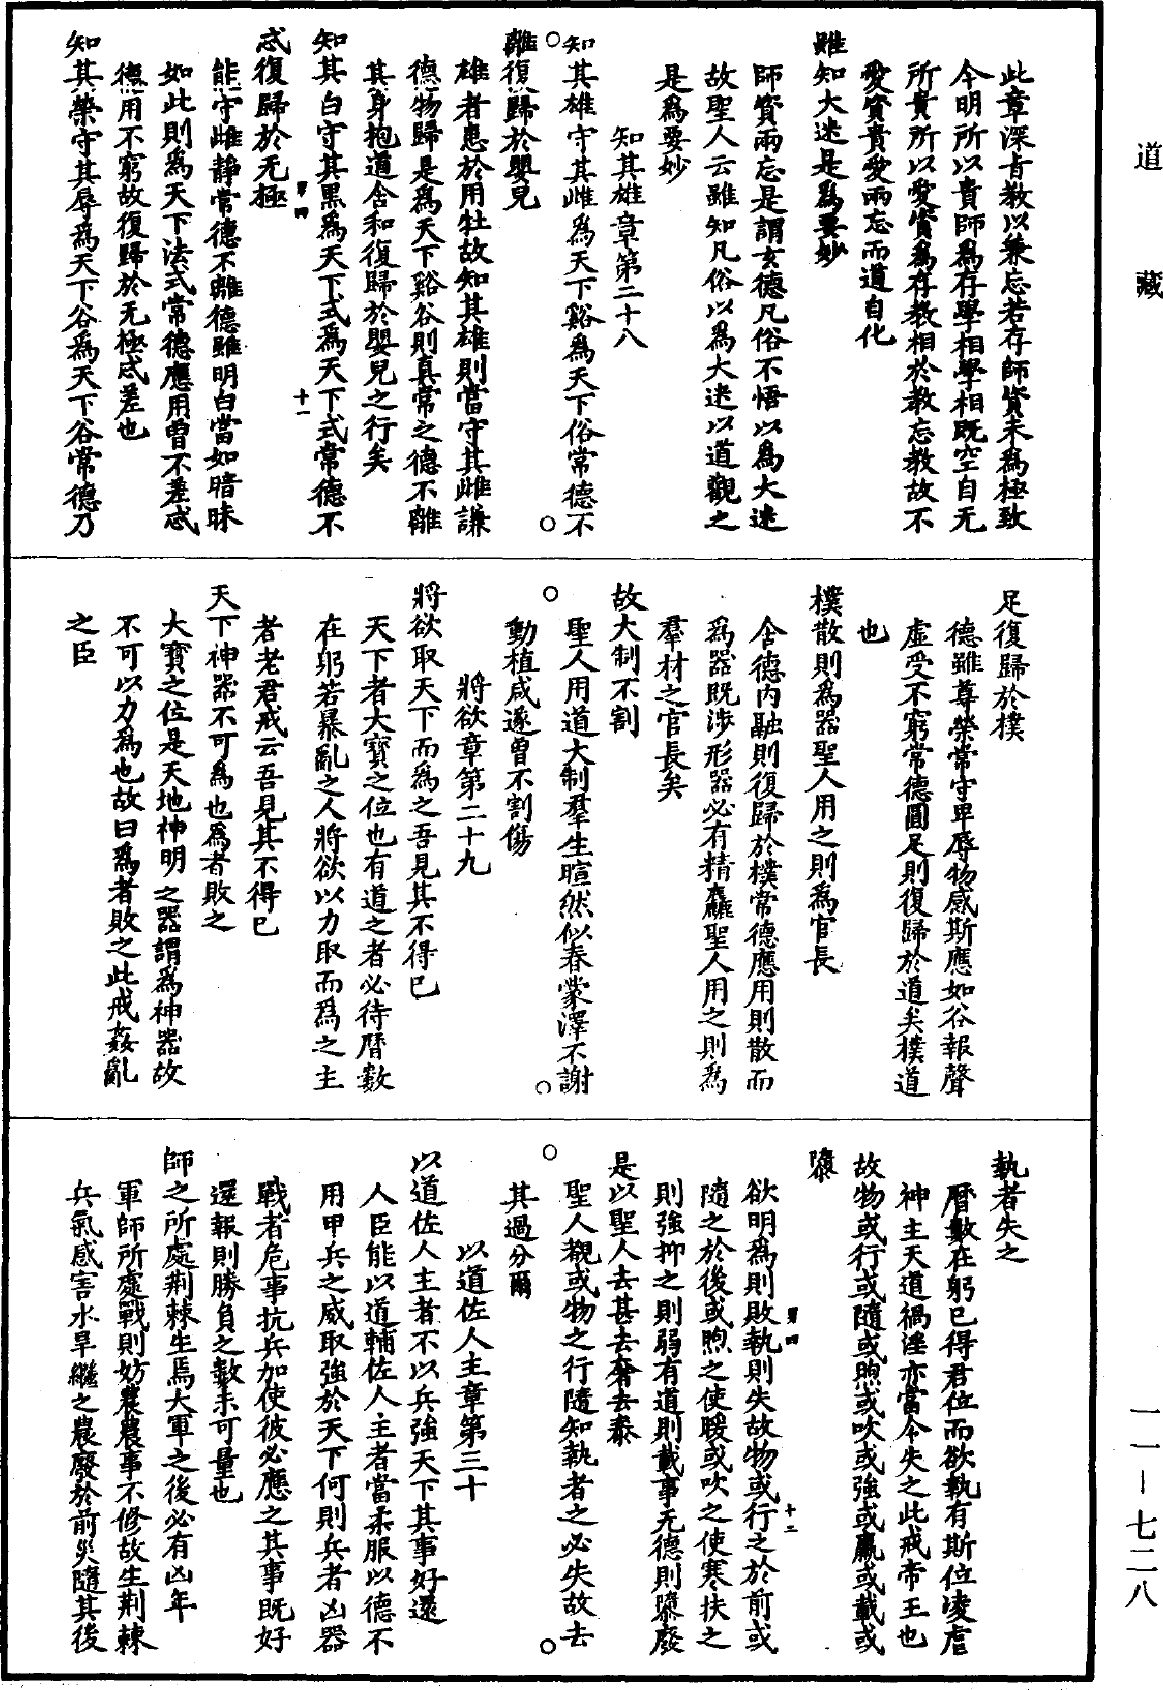 道藏
此章深旨教以兼忘若存師資未爲極致
今明所以貴師爲存學相學相既空自无
所貴所以愛資爲存教相於教忘教故不
愛資貴愛兩忘而道自化
雖知大迷是爲要妙
師資兩忘是謂玄德凡俗不悟以爲大迷
故聖人云雖知凡俗以爲大迷以道觀之
是爲要妙
知其雄章第二十八
知其雄守其雌爲天下谿爲天下俗常德不
離復歸於嬰兒
雄者患於用牡故知其雄則當守其雌謙
德物歸是爲天下谿谷則真常之德不離
其身抱道含和復歸於嬰兒之行矣
知其白守其黑爲天下式爲天下式常德不
忒復歸於无極
能守雌靜常德不離德雖明白當如暗昧
如此則爲天下法式常德應用曾不差忒
德用不窮故復歸於无極忒差也
知其榮守其辱爲天下谷爲天下谷常德乃
足復歸於樸
德雖尊榮常守卑辱物感斯應如谷報聲
虛受不窮常德圓足則復歸於道矣樸道
也
樸散則爲器聖人用之則爲官長
含德內融則復歸於樸常德應用則散而
爲器既涉形器必有精麤聖人用之則爲
羣材之官長矣
故大制不割
聖人用道大制羣生暄然似春蒙澤不謝
動植咸遂曾不割傷
將欲章第二十九
將欲取天下而爲之吾見其不得已
天下者大寶之位也有道之者必待曆數
在躬若暴亂之人將欲以力取而爲之主
者老君戒云吾見其不得已
天下神器不可爲也爲者敗之
大寶之位是天地神明之器謂爲神器故
不可以力爲也故曰爲者敗之此戒姦亂
之臣
執者失之
曆數在躬已得君位而欲執有斯位凌虐
神主天道禍淫亦當令失之此戒帝王也
故物或行或隨或煦或吹或強或羸或載或
隳
欲明爲則敗執則失故物或行之於前或
隨之於後或煦之使暖或吹之使寒扶之
則強抑之則弱有道則載事无德則隳廢
是以聖人去甚去奢去泰
聖人觀或物之行隨知執者之必失故去
其過分爾
以道佐人主章第三十
以道佐人主者不以兵強天下其事好還
人臣能以道輔佐人主者當柔服以德不
用甲兵之威取強於天下何則兵者凶器
戰者危事抗兵加使彼必應之其事既好
還報則勝負之數未可量也
師之所處荆棘生焉大軍之後必有凶年
軍師所處戰則妨農農事不修故生荆棘
兵氣感害水旱繼之農廢於前災隨其後
第四
十一
第四
十二
一一－七二八